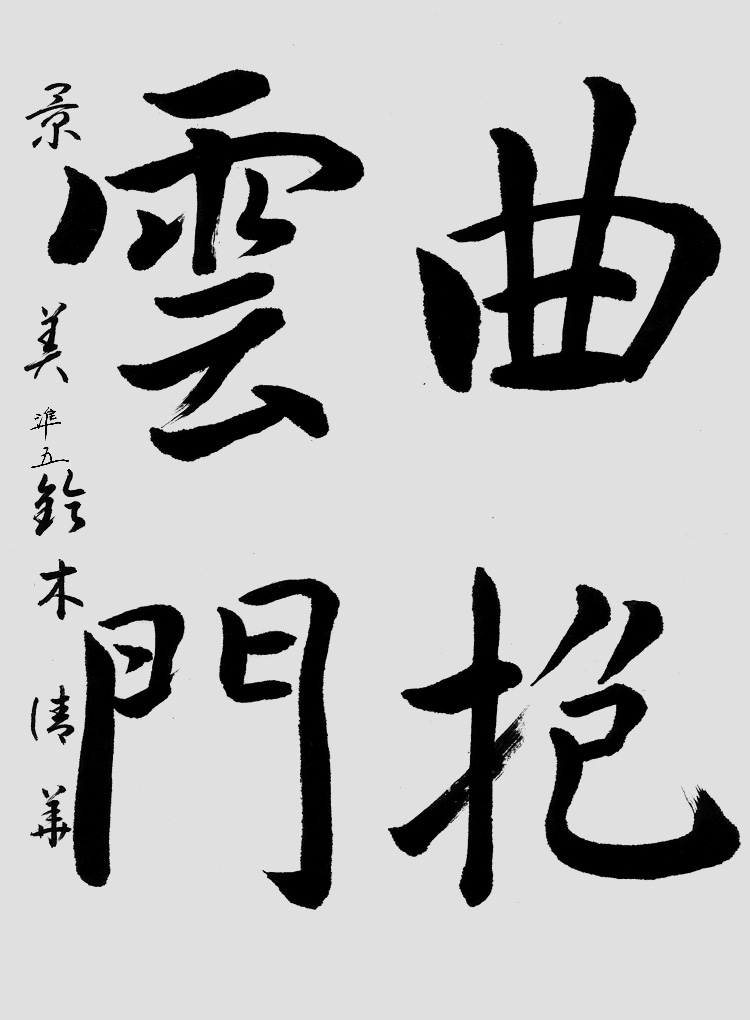 曲抱
雲門
景美準五鈴木清華